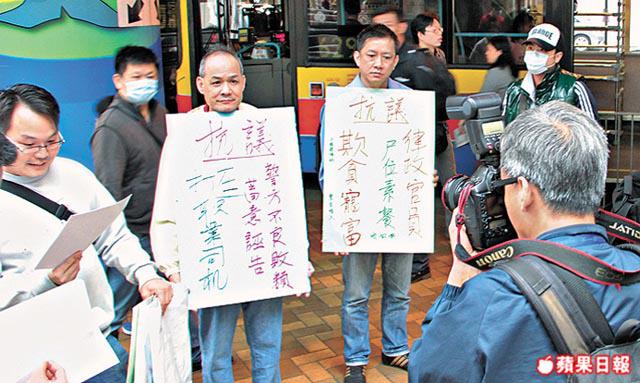 抗議
警方不良敗類
蓄意誣告
業司机
抗議
律政官員
尸位素餐
欺貧寵富
Canon
蘋果日報